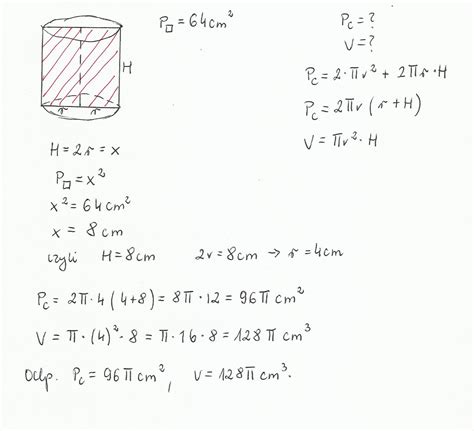 P□ = 64 cm²
Pc = ?
V = ?
H
r r
Pc = 2·πr² + 2πr·H
Pc = 2πr (r + H)
V = πr²·H
H = 2r = x
P□ = x²
x² = 64 cm²
x = 8 cm
czyli H = 8 cm 2r = 8 cm → r = 4 cm
Pc = 2π·4 (4+8) = 8π·12 = 96π cm²
V = π·(4)²·8 = π·16·8 = 128π cm³
Odp. Pc = 96π cm², V = 128π cm³.